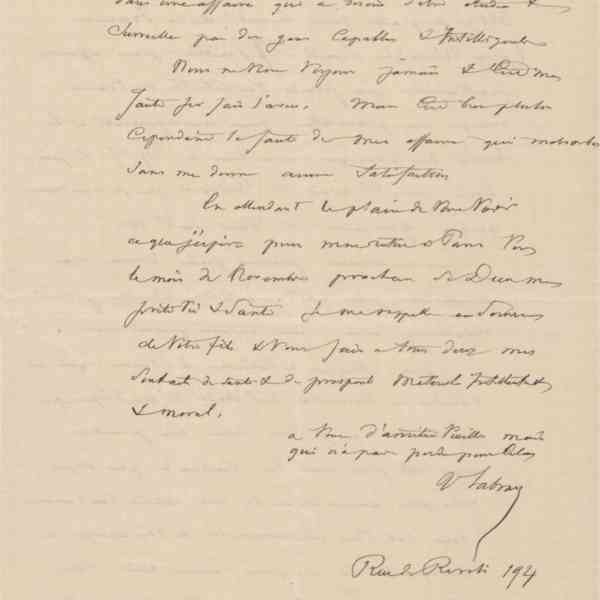 dans une affaire qui a besoin d'être étudiée &
surveillée par des gens capables & intelligents
Nous ne nous voyons jamais & c'est ma
faute je fais l'aveu. Mais c'est bien plutôt
cependant la faute de mes affaires qui m'absorbent
sans me donner aucune satisfaction
En attendant le plaisir de vous voir
ce que j'espère pour ma rentrée à Paris vers
le mois de Novembre prochain si Dieu me
prête vie & santé je me rappelle au souvenir
de votre fils & vous fais à tous deux mes
souhaits de santé & de prospérité matérielle intellectuelle
& moral.
a vous d'amitié vieille mais
qui n'a pas perdu pour cela
V
Rue de Rivoli 194